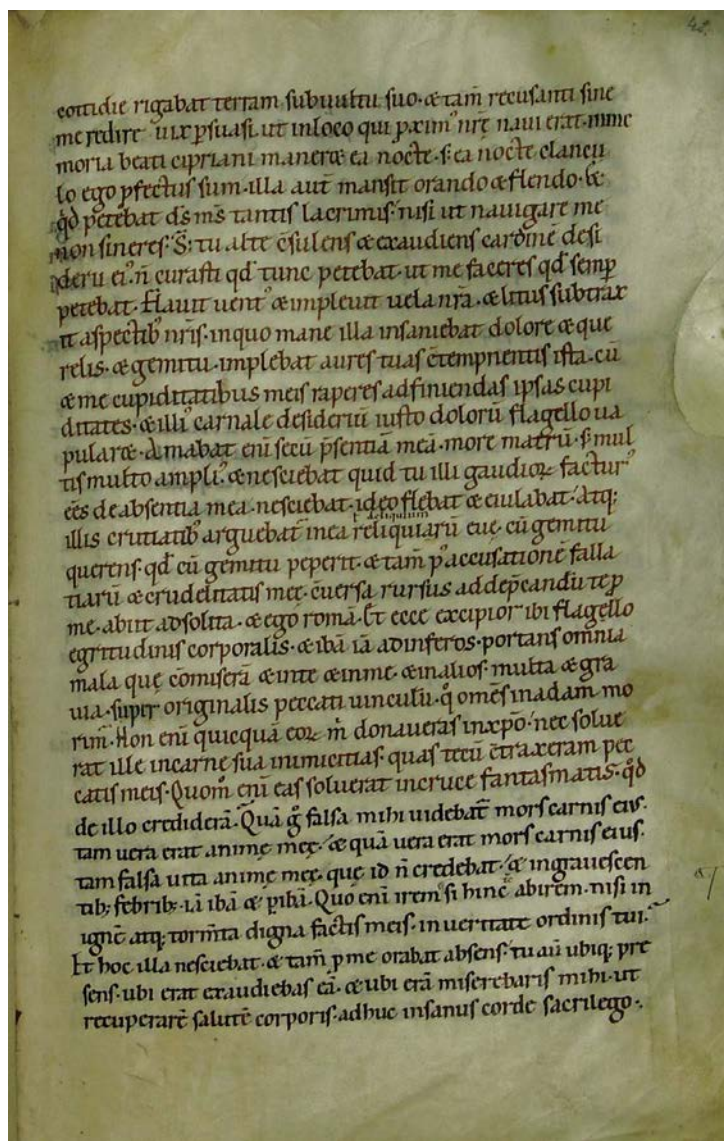 48.
cottidie rigabat terram sub uultu suo. & tam̄ recusanti sine
me redire uix p̱suasi. ut in loco qui p̱xim᷒ nr̄ę naui erat. mme
moria beati cipriani maner& ea nocte. s; ea nocte clancu
lo ego p̱fectus sum. illa aut̄ mansit orando & flendo. &
qd̄ petebat d̄s m̄s tantis lacrimis. nisi ut nauigare me
non sineres. S; tu alte c̄sulens & exaudiens cardinē desi
derii ei᷒. n̄ curasti qd̄ tunc petebat. ut me faceres qd̄ semp̱
petebat. Flauit uent᷒ & impleuit uela nr̄a. & litus subtrax
it aspectib᷒ nr̄is. in quo mane illa insaniebat dolore & que
relis. & gemitu. implebat aures tuas c̄tempnentis ista. cū
& me cupiditatibus meis raperes ad finiendas ipsas cupi
ditates. & illi᷒ carnale desideriū iusto dolorū flagello ua
pular&. Amabat eni̅ secū p̄sentiā meā. more matrū. s; mul
tis multo ampli᷒. & nesciebat quid tu illi gaudioꝝ factur᷒
ēēs de absentia mea. nesciebat. ideo flebat & eiulabat. Atq;
illis cruciatib᷒ arguebat̄ in ea reliquiarū euę. cū gemitu
querens. qd̄ cū gemitu peperit. & tam̄ p᷒ accusationē falla
tiarū & crudelitatis meę. c̄uersa rursus ad dep̄candū te p̱
me. abiit ad solita. & ego romā. Et ecce excipior ibi flagello
egritudinis corporalis. & ibā iā ad inferos. portans omnia
mala quę cōmiserā & in te & in me. & in alios. multa & gra
uia. super originalis peccati uinculū. q̊ om̄es in adam mo
rim̄. Non eni̅ quicquā eoꝝ m̄ donaueras in xp̄o. nec solue
rat ille in carne sua inimicitias. quas tecū c̄traxeram pec
catis meis. Quom̊ eni̅ eas soluerat in cruce fantasmatis. qd̄
de illo credidera̅. Quā g̊ falsa mihi uidebat̄ mors carnis eius.
tam uera erat animę meę. & quā uera erat mors carnis eius.
tam falsa uita animę meę. que id n̄ credebat. & ingrauescen
tib; febrib; iā ibā & p̱ibā. Quo eni̅ irem si hinc abirem. nisi in
ignē atq; torm̄ta digna factis meis. in ueritate ordinis tui.
Et hoc illa nesciebat. & tam̄ p̱ me orabat absens. tu aū ubiq; pre
sens. ubi erat exaudiebas eā. & ubi erā miserebaris mihi. ut
recuperarē salutē corporis. adhuc insanus corde sacrilego.